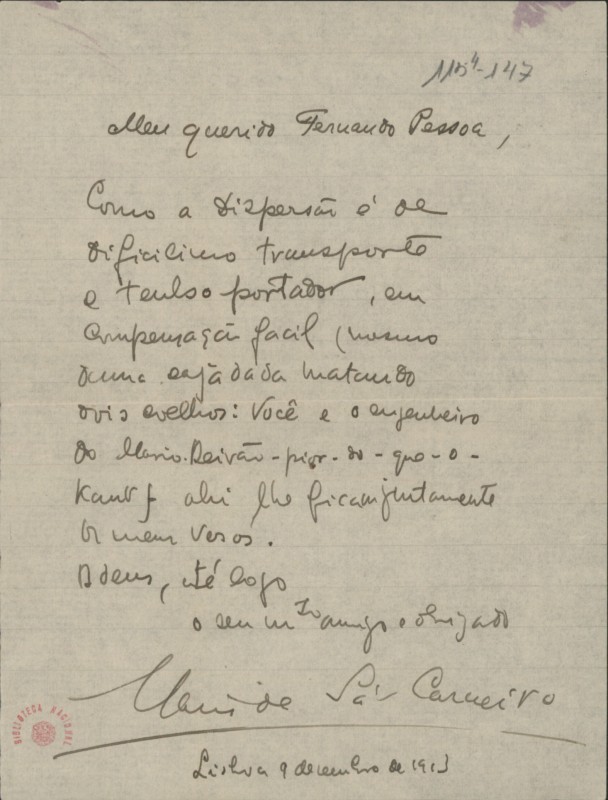 115⁴-147
Meu querido Fernando Pessoa,
Como a Dispersão é de
dificilimo transporte
e tenho portador, em
compensação facil (mesmo
duma cajadada matando
dois coelhos: Você e o engenheiro
do Mario-Beirão-pior-do-que-o-
Kant) ahi lhe ficam juntamente
os meus versos.
Adeus, até logo
o seu mto amigo e obrigado
Mário de Sá-Carneiro
BIBLIOTECA NACIONAL
Lisboa 9 dezembro de 1913